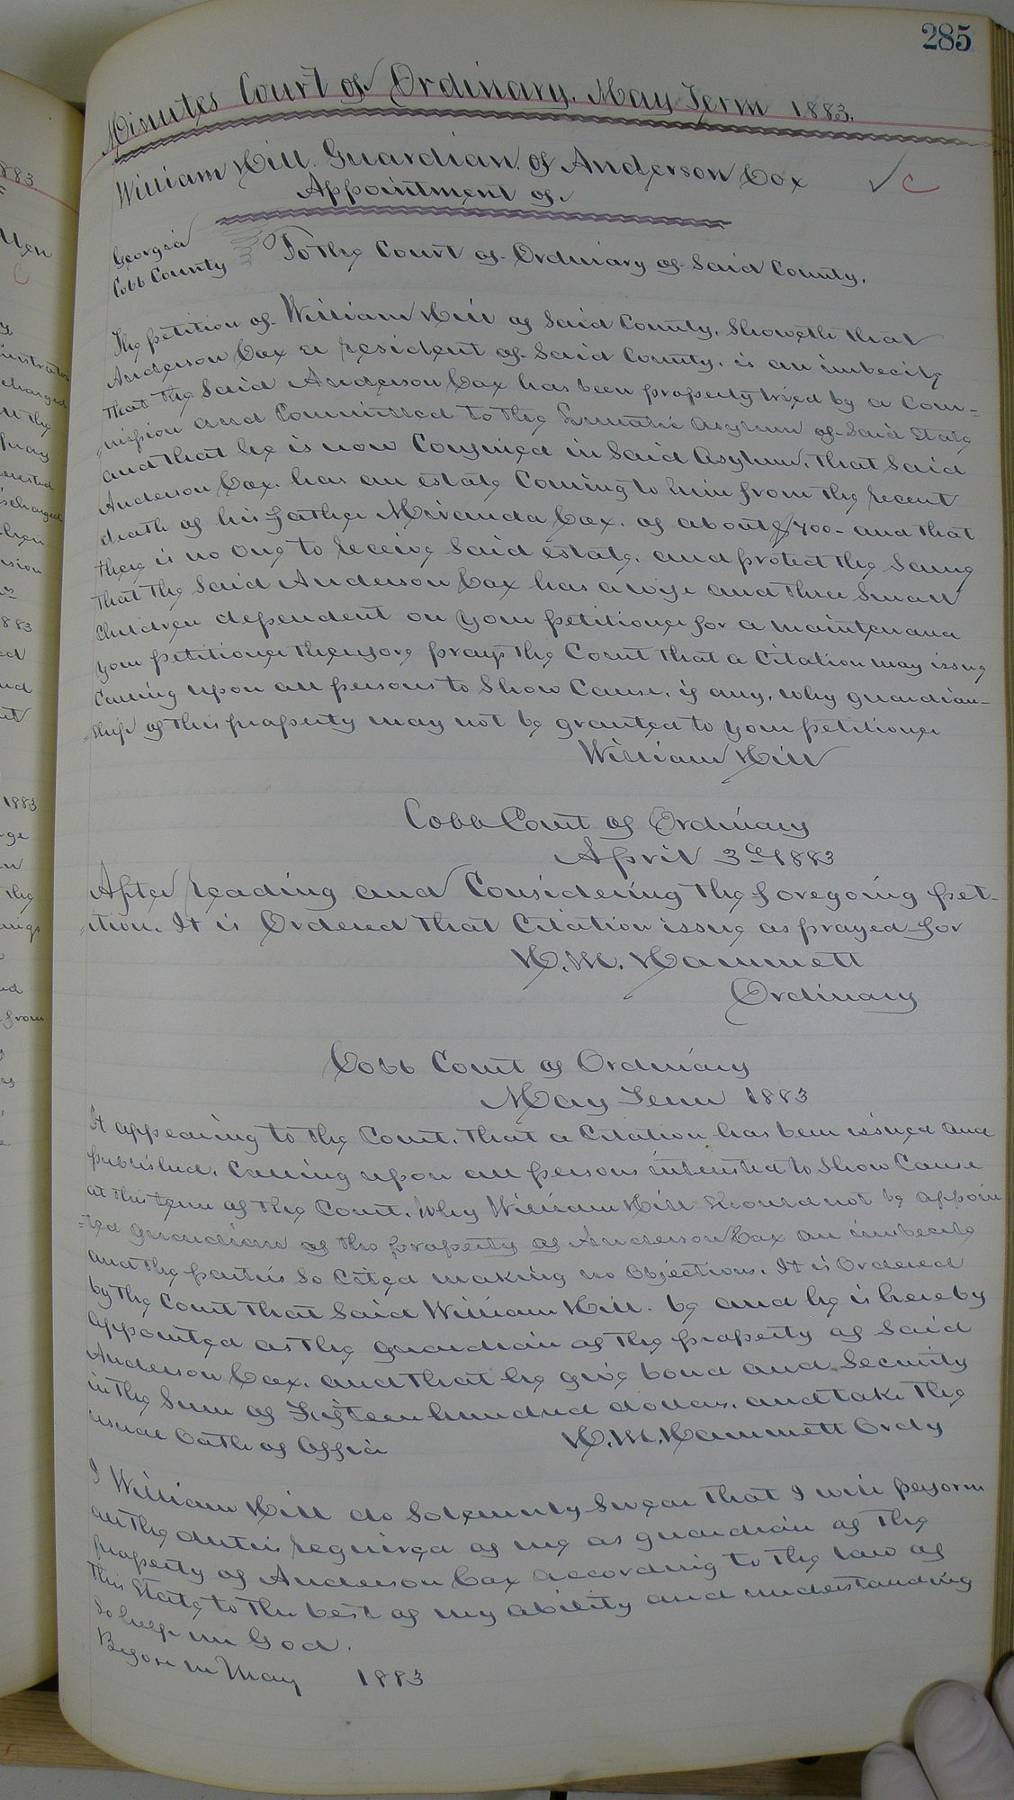 285
Minutes Court of Ordinary, May Term 1883.
William Hill Guardian of Anderson Cox ✓ C
Appointment of
Georgia
Cobb County
To the Court of Ordinary of Said County.
The petition of William Hill of Said County, Showeth that
Anderson Cox a resident of Said County, is an imbecile
that the Said Anderson Cox has been properly tried by a Com=
mission and Committed to the Lunatic Asylum of Said State
and that he is now Confined in Said Asylum, that Said
Anderson Cox, has an estate Coming to him from the recent
death of his father Miranda Cox, of about $700- and that
there is no one to receive Said estate, and protect the Same
that the Said Anderson Cox has a wife and three Small
Children dependent on your petitioner for a maintenance
your petitioner therefore prays the Court that a Citation may issue
Calling upon all persons to Show Cause, if any, why guardian-
=ship of this property may not be granted to your petitioner
William Hill
Cobb Court of Ordinary
April 3rd 1883
After reading and Considering the foregoing pet-
ition. It is Ordered that Citation issue as prayed for
H. M. Hammett
Ordinary
Cobb Court of Ordinary
May Term 1883
It appearing to the Court, that a Citation has been issued and
published, Calling upon all persons interested to Show Cause
at this term of the Court, Why William Hill Should not be appoin
=ted guardian of the property of Anderson Cox an imbecile
and the parties So Cited making no Objections. It is Ordered
by the Court that Said William Hill. be and he is hereby
appointed as the guardian of the property of Said
Anderson Cox, and that he give bond and Security
in the Sum of Fifteen hundred dollars, and take the
usual Oath of Office H. M. Hammett Ordy
I William Hill do Solemnly Swear that I will perform
all the duties required of me as guardian of the
property of Anderson Cox according to the law of
this State to the best of my ability and understanding
So help me God.
Before me May 1883